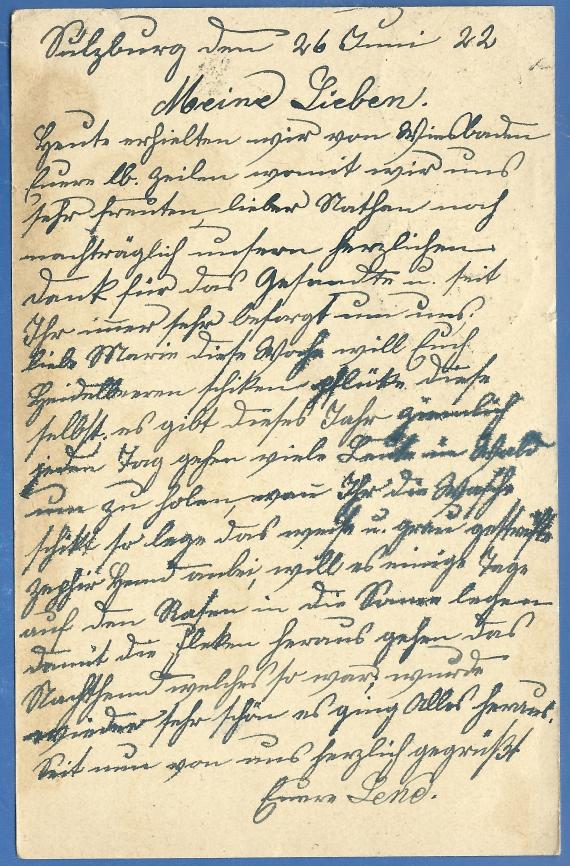 Sulzburg den 26 Juni 22
Meine Lieben.
Heute erhielten wir von Wiesbaden
Euere lb. Zeilen womit wir uns
sehr freuten, lieber Nathan noch
nachträglich unsern herzlichen
Dank für das Gesandte u. seit
Ihr imer sehr besorgt um uns.
liebe Marie diese Woche will Euch
Heidelbeeren schiken pflükte diese
selbst. es gibt dieses Jahr ziemlich
jeden Tag gehen viele Leute in Wald
um zu holen, wan Ihr die Wäsche
schikt so lege das weiß u. grau gestreifte
Zephir Hemd anbei, will es einige Tage
auf den Rasen in die Sonne legen
damit die Fleken heraus gehen das
Nachthemd welches so war, wurde
wieder sehr schön es ging Alles heraus.
Seit nun von uns herzlich gegrüßt
Euere Lene.